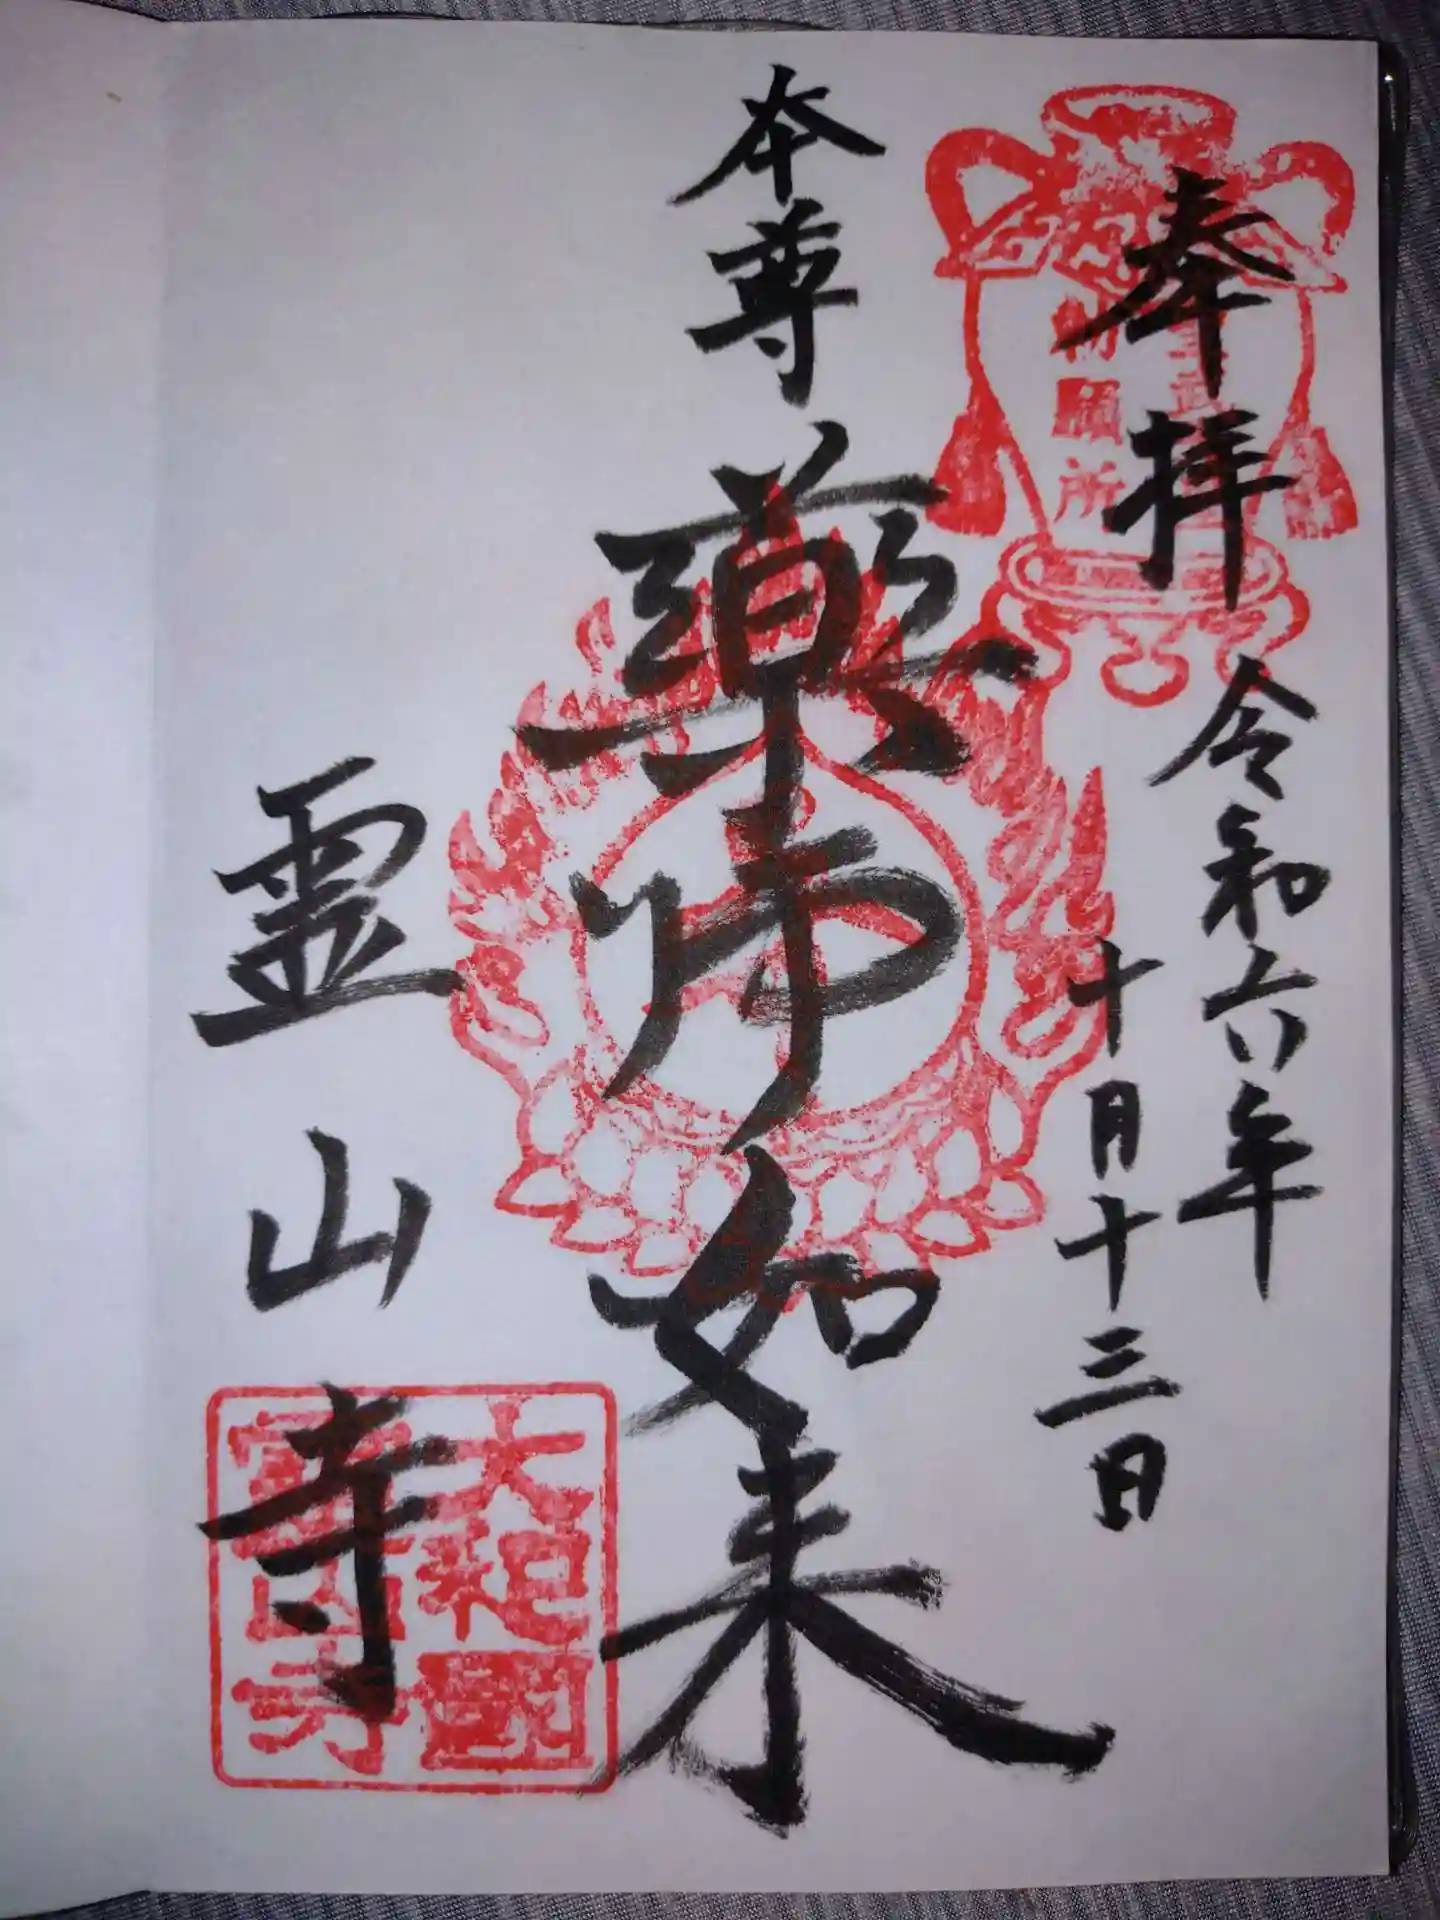 奉拝
令和六年
十月十三日
本尊
薬师如来
霊山寺
勅願所
大和國
霊山寺